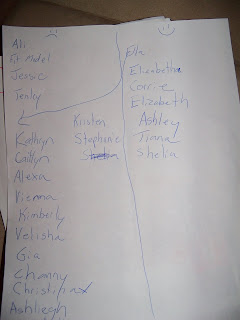 Ali
Fit Model
Jessie
Tenley
Kathryn
Caitlyn
Alexa
Vienna
Kimberly
Valishia
Gia
Channy
Christina
Ashleigh
Kristen
Stephanie
Ella
Elizabetha
Corrie
Elizabeth
Ashley
Tiana
Shelia